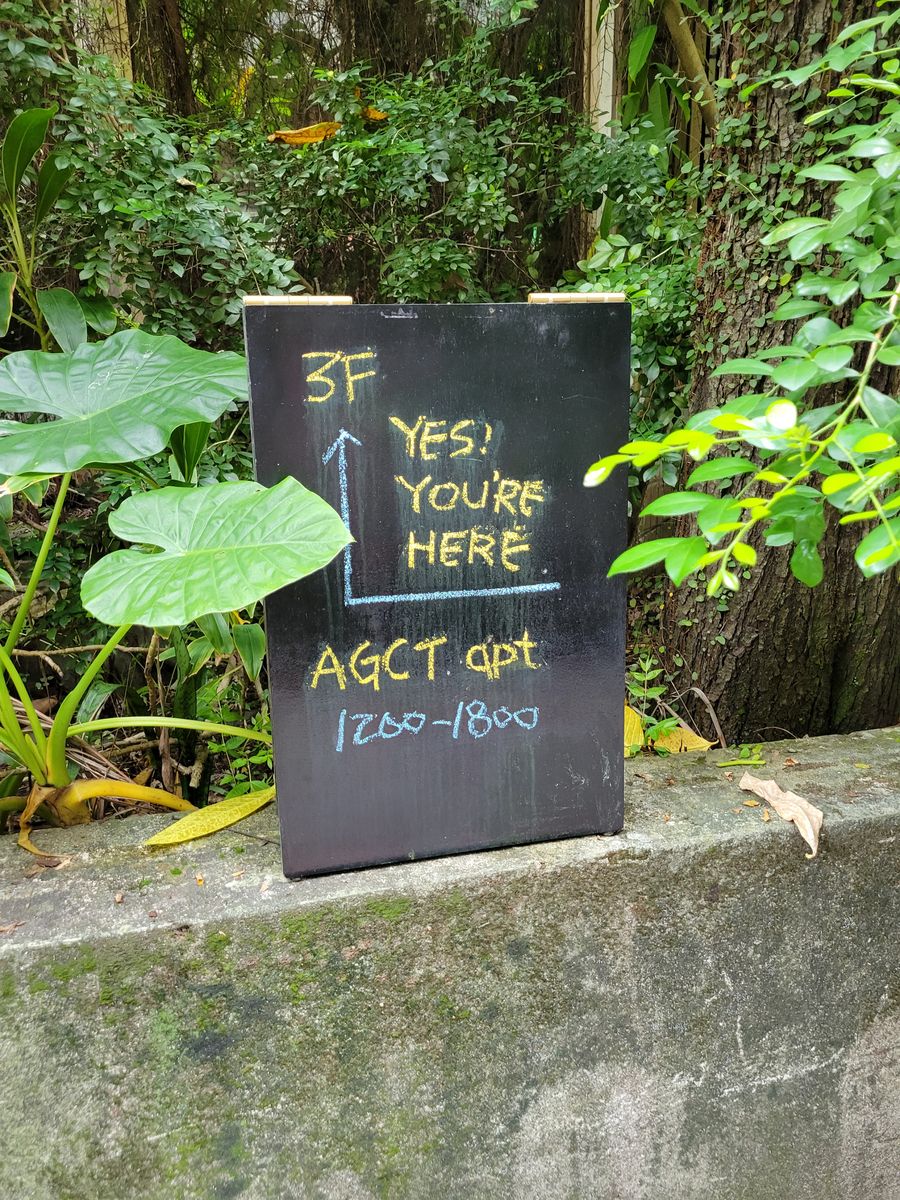 3F
YES!
YOU'RE
HERE
AGCT apt
1200-1800